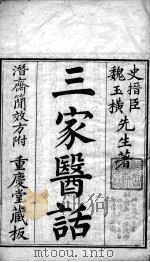 史搢臣
魏玉橫 先生著
三家醫話
潛齋簡效方附 重慶堂藏板
www.mtoou.info